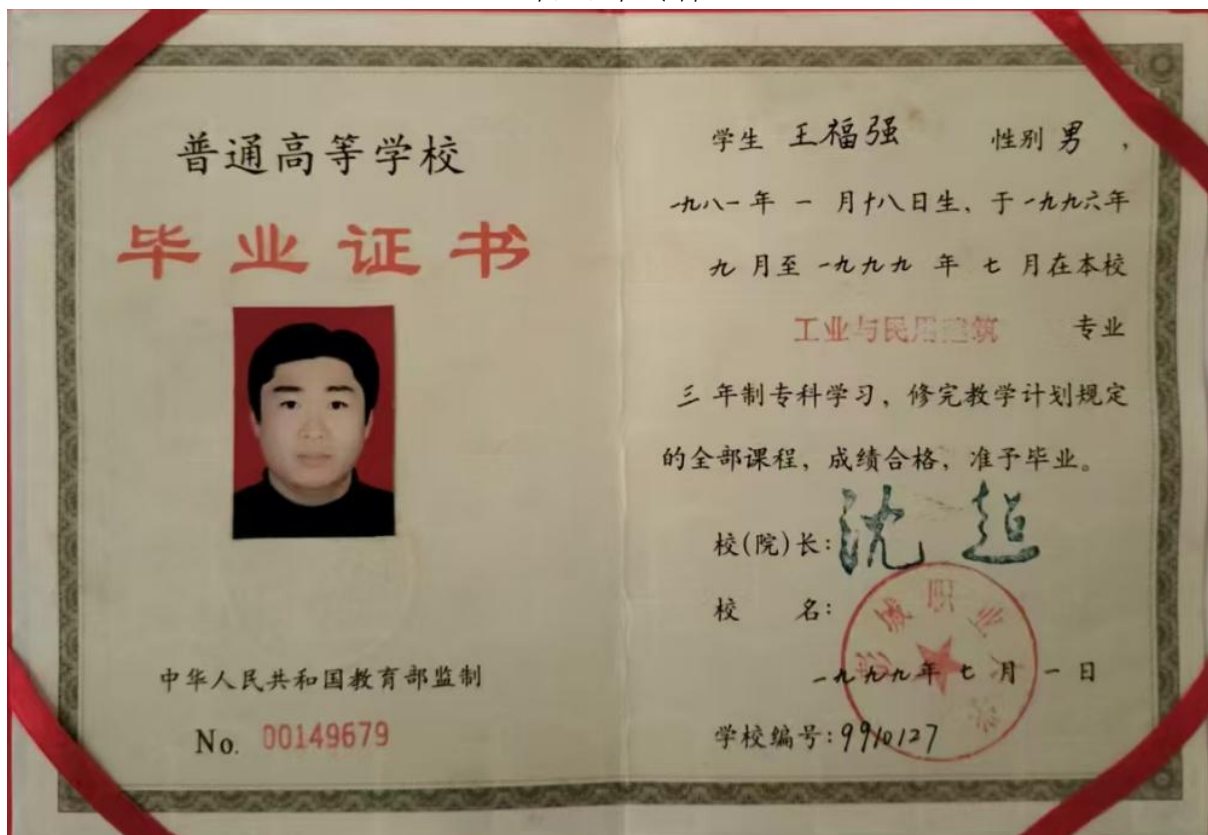 普通高等学校
毕业证书
中华人民共和国教育部监制
No. 00149679
学生 王福强 性别 男,
一九八一年 一 月十八日生、于一九九六年
九 月至 一九九九 年 七 月在本校
工业与民用建筑 专业
三 年制专科学习，修完教学计划规定
的全部课程，成绩合格，准予毕业。
校(院)长: 沈超
校 名:
职业大学
一九九九年 七 月 一 日
学校编号: 9910127